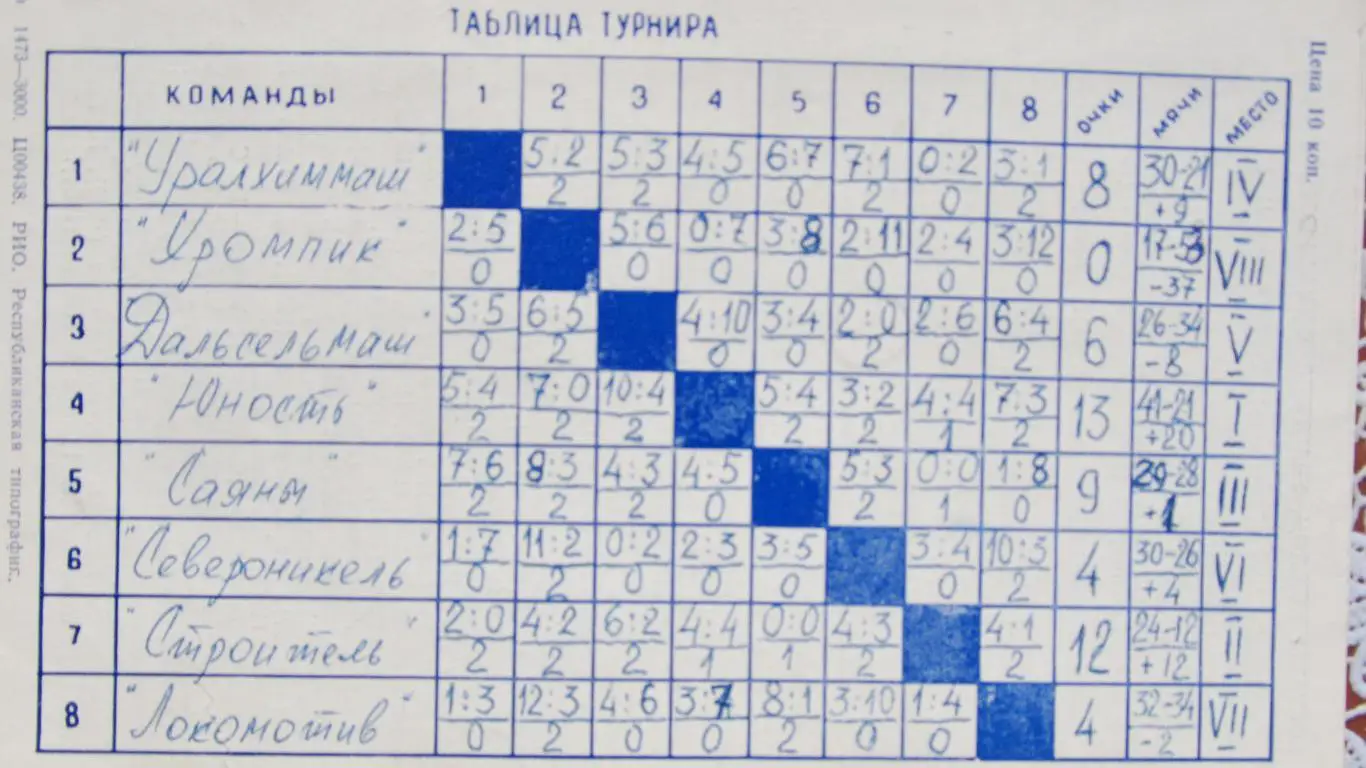 ТАБЛИЦА ТУРНИРА
КОМАНДЫ 1 2 3 4 5 6 7 8 ОЧКИ МЯЧИ МЕСТО
1 "Уралхиммаш" 5:2 5:3 4:5 6:7 7:1 0:2 3:1 8 30-21 IV
2 2 0 0 2 0 2 +9
2 "Хромпик" 2:5 5:6 0:7 3:8 2:11 2:4 3:12 0 17-53 VIII
0 0 0 0 0 0 0 -37
3 "Дальсельмаш" 3:5 6:5 4:10 3:4 2:0 2:6 6:4 6 26-34 V
0 2 0 0 2 0 2 -8
4 "Юность" 5:4 7:0 10:4 5:4 3:2 4:4 7:3 13 41-21 I
2 2 2 2 2 1 2 +20
5 "Саяны" 7:6 8:3 4:3 4:5 5:3 0:0 1:8 9 29-28 III
2 2 2 0 2 1 0 +1
6 "Североникель" 1:7 11:2 0:2 2:3 3:5 3:4 10:3 4 30-26 VI
0 2 0 0 0 0 2 +4
7 "Строитель" 2:0 4:2 6:2 4:4 0:0 4:3 4:1 12 24-12 II
2 2 2 1 1 2 2 +12
8 "Локомотив" 1:3 12:3 4:6 3:7 8:1 3:10 1:4 4 32-34 VII
0 2 0 0 2 0 0 -2
1473—3000. Ц00438. РИО. Республиканская типография.
Цена 10 коп.